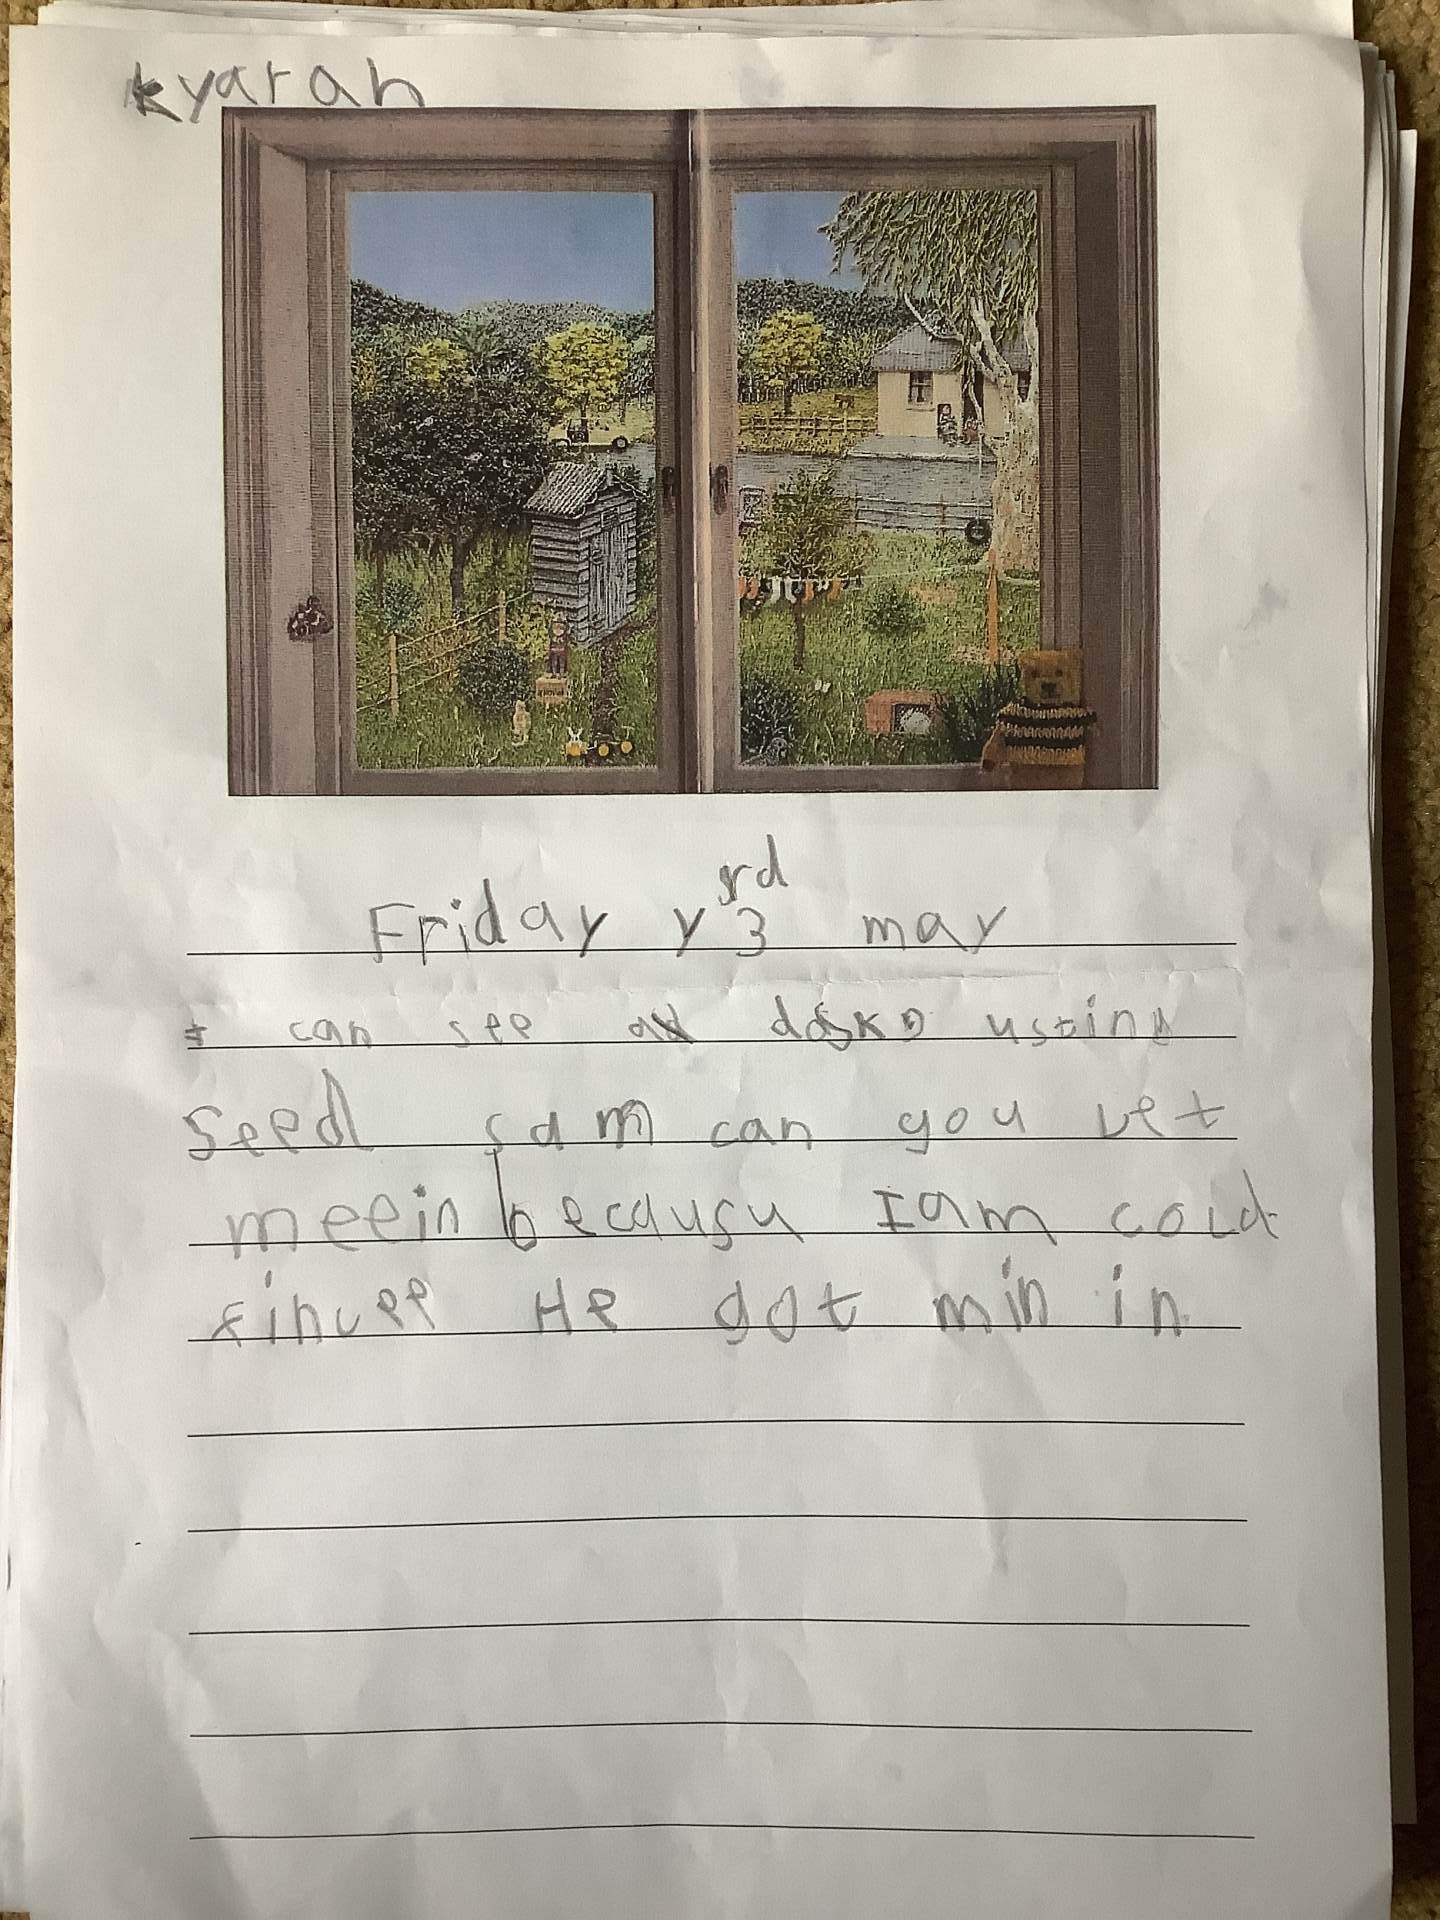 kyarah
Friday y 3rd may
I can see a dasko usting
seed sam can you let
meein becausu I am cold
fincee He got min in.